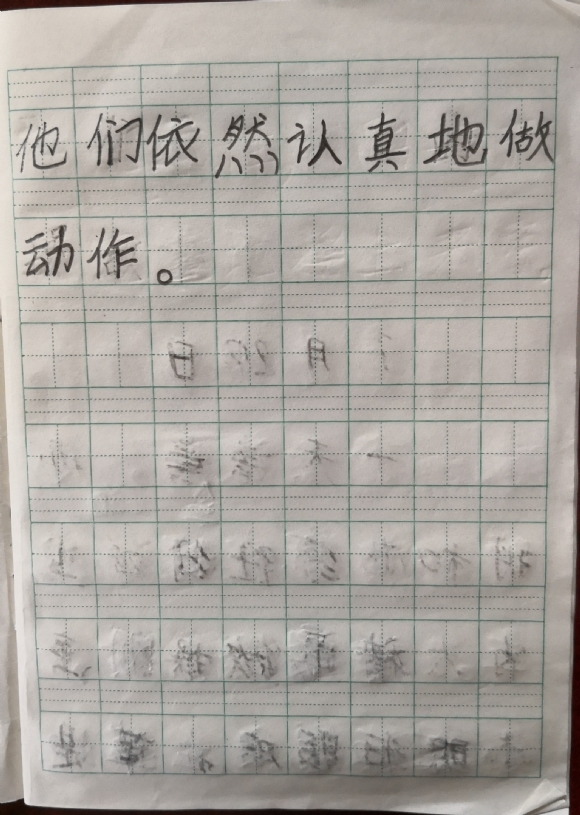 他们依然认真地做
动作。